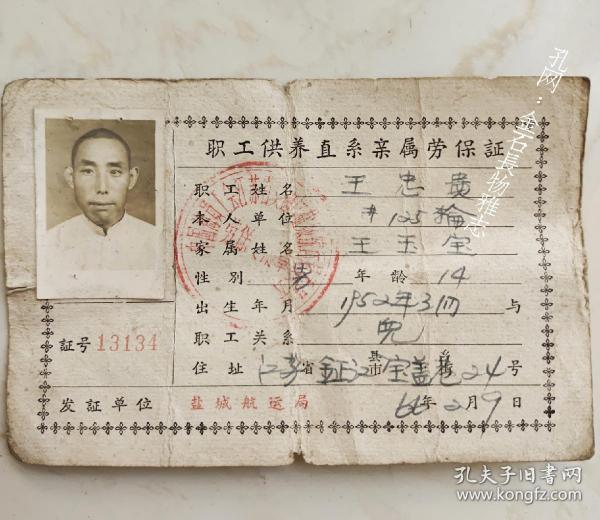 职工供养直系亲属劳保証
职工姓名 王忠貴
本人单位 #125輪
家属姓名 王玉宝
性别 男 年齡 14
出生年月 1952年3月 与
职工关系 兒
住址 江苏省 镇江 县市 宝盖巷 24号
証号 13134
发証单位 盐城航运局 66年2月9日
孔网：金石長物雅志
孔夫子旧书网
www.kongfz.com